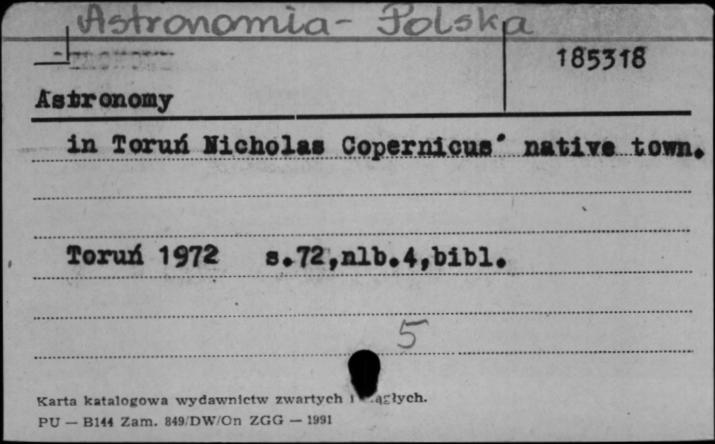 Astronomia - Polska
185318
Astronomy
in Toruń Nicholas Copernicus' native town.
Toruń 1972 s.72,nlb.4,bibl.
5
Karta katalogowa wydawnictw zwartych i
PU — B144 Zam. 849/DW/On ZGG — 1991